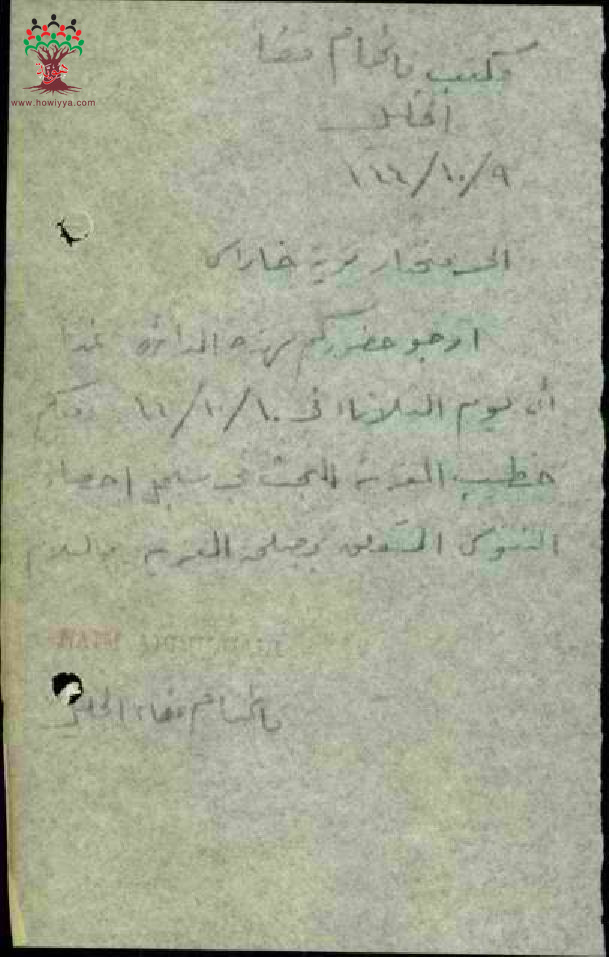 www.howiyya.com
مكتب قائمقام قضاء
الخليل
٩/١٠/
الى مختار قرية خاراس
ارجو حضوركم لهذه الدائرة غدا
أي يوم الثلاثاء في ١٠/١٠/
خطيب القرية للبحث في سجل احصاء
النفوس المتعلق بأهل القرية والسلام
قائمقام قضاء الخليل